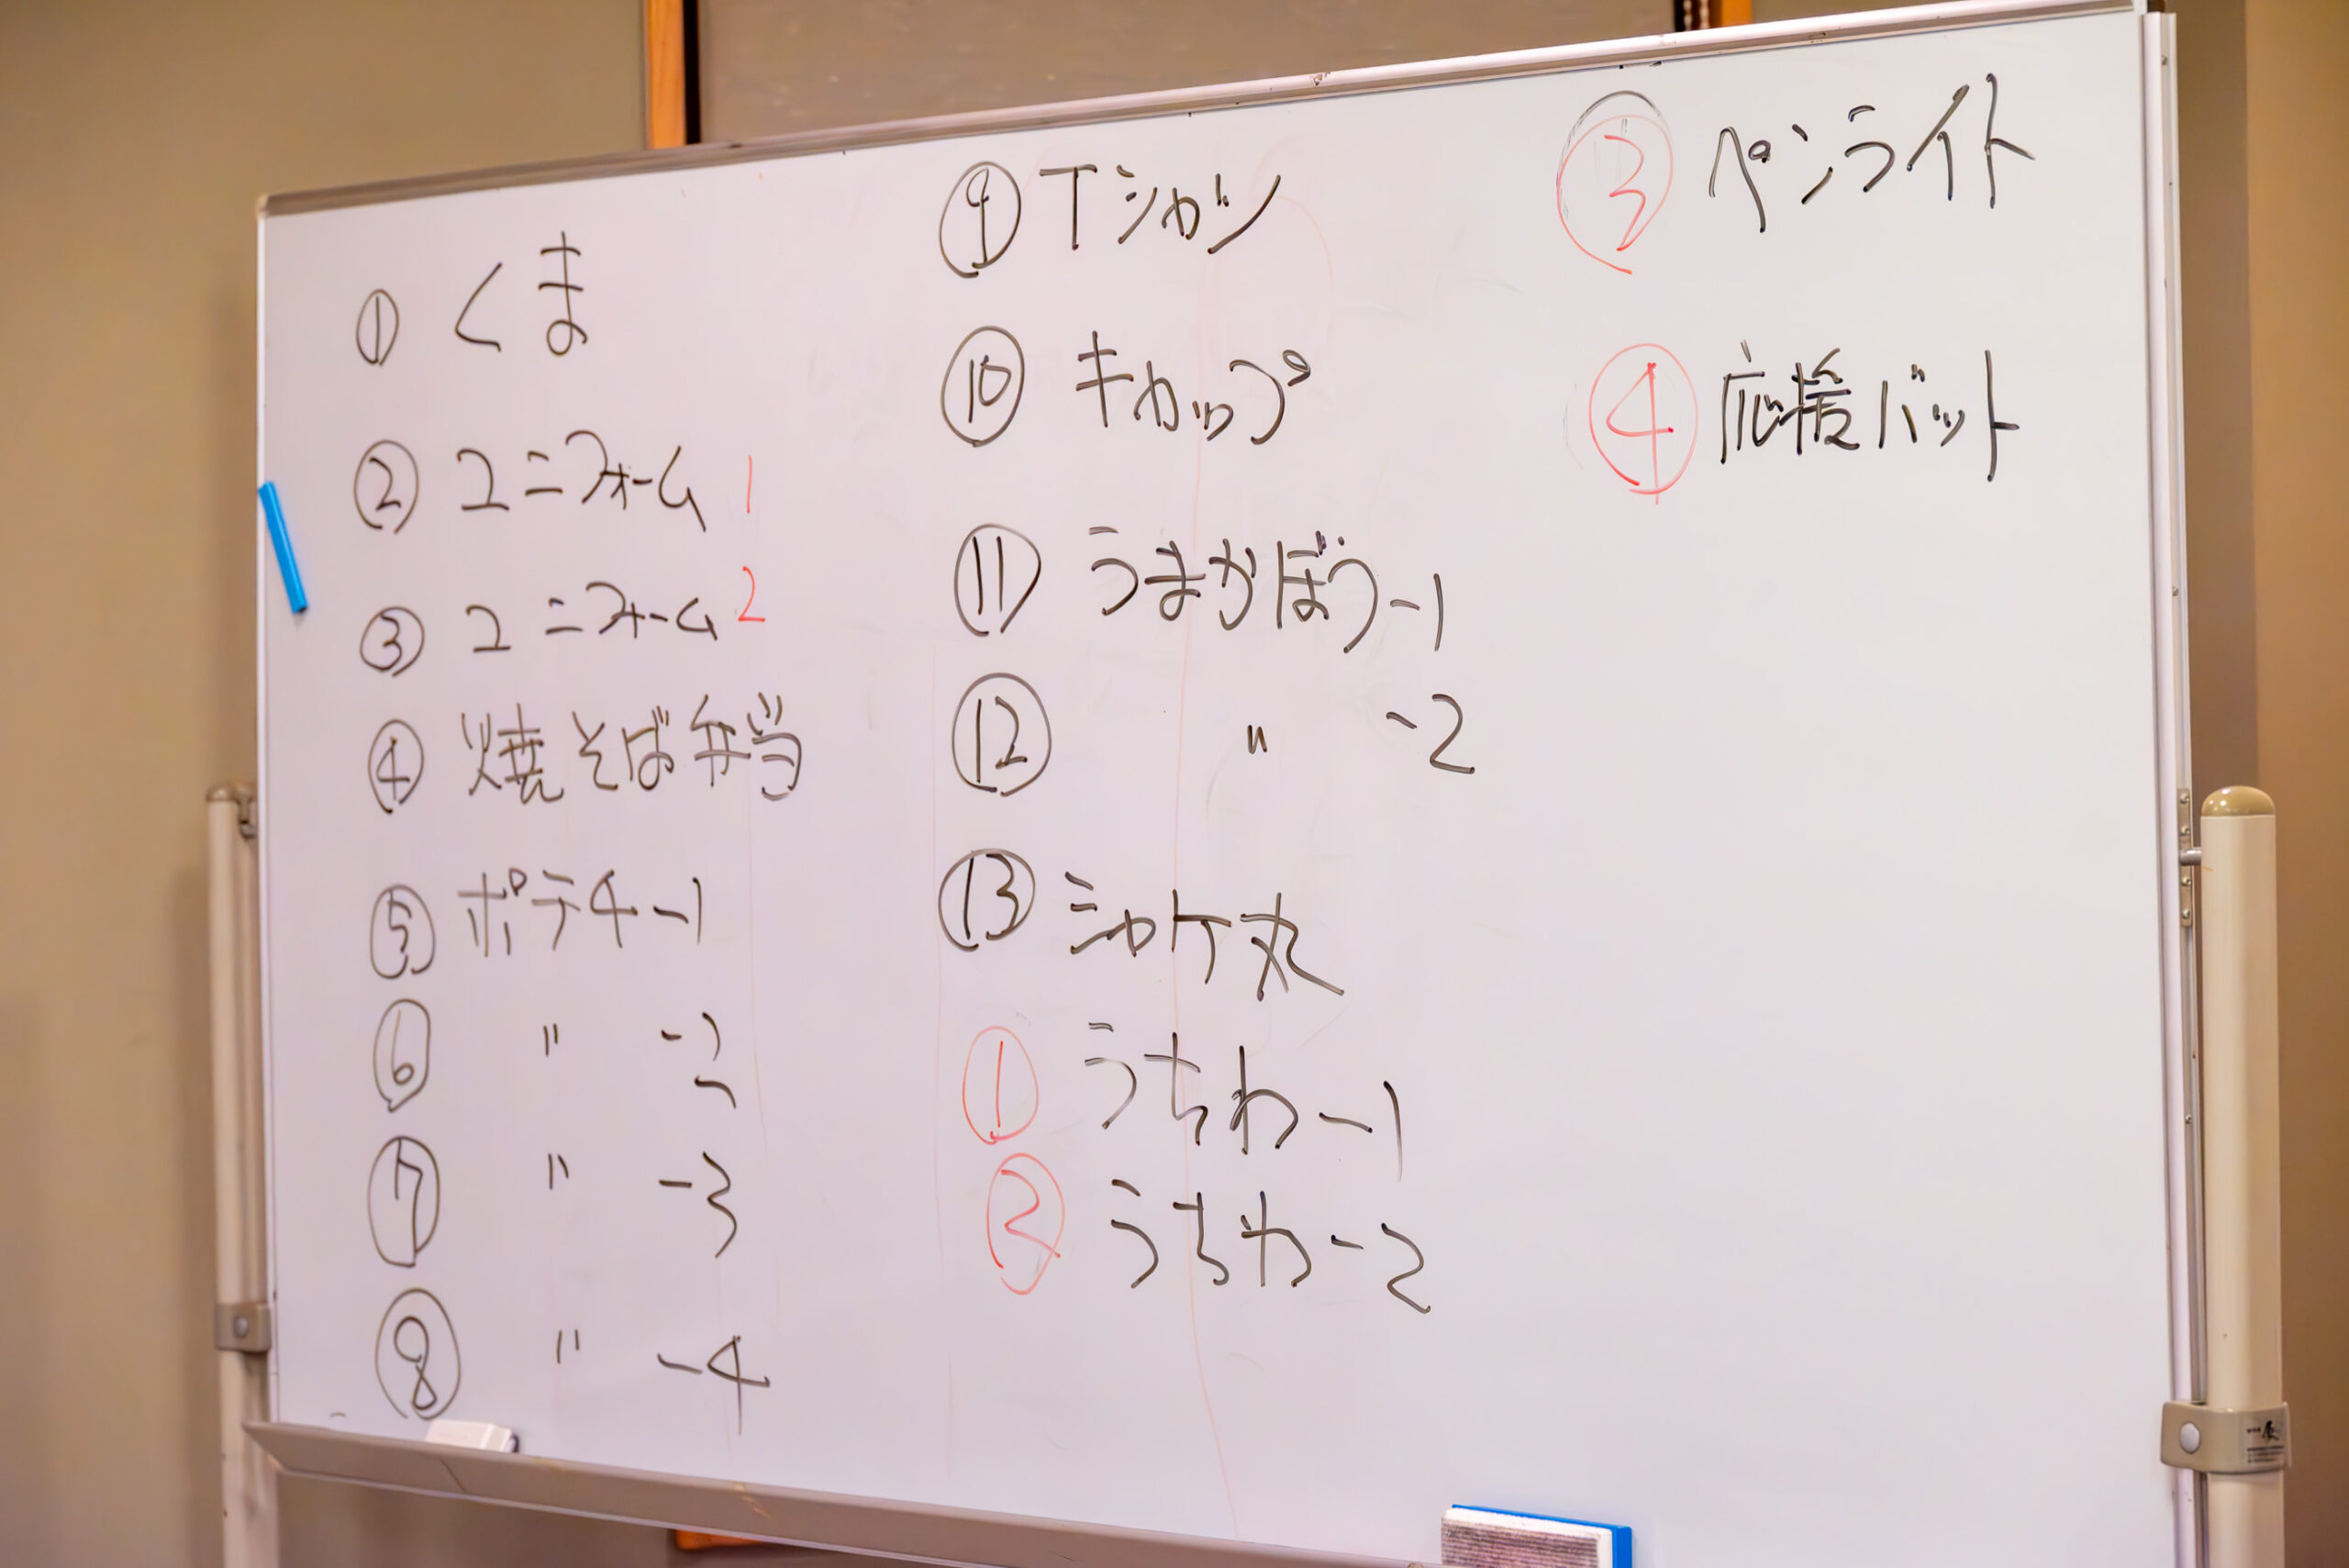 ① くま
② ユニフォーム 1
③ ユニフォーム 2
④ 焼そば弁当
⑤ ポテチ-1
⑥ 〃 -2
⑦ 〃 -3
⑧ 〃 -4
⑨ Tシャツ
⑩ キャップ
⑪ うまかぼう-1
⑫ 〃 -2
⑬ シャケ丸
① うちわ-1
② うちわ-2
③ ペンライト
④ 応援バット